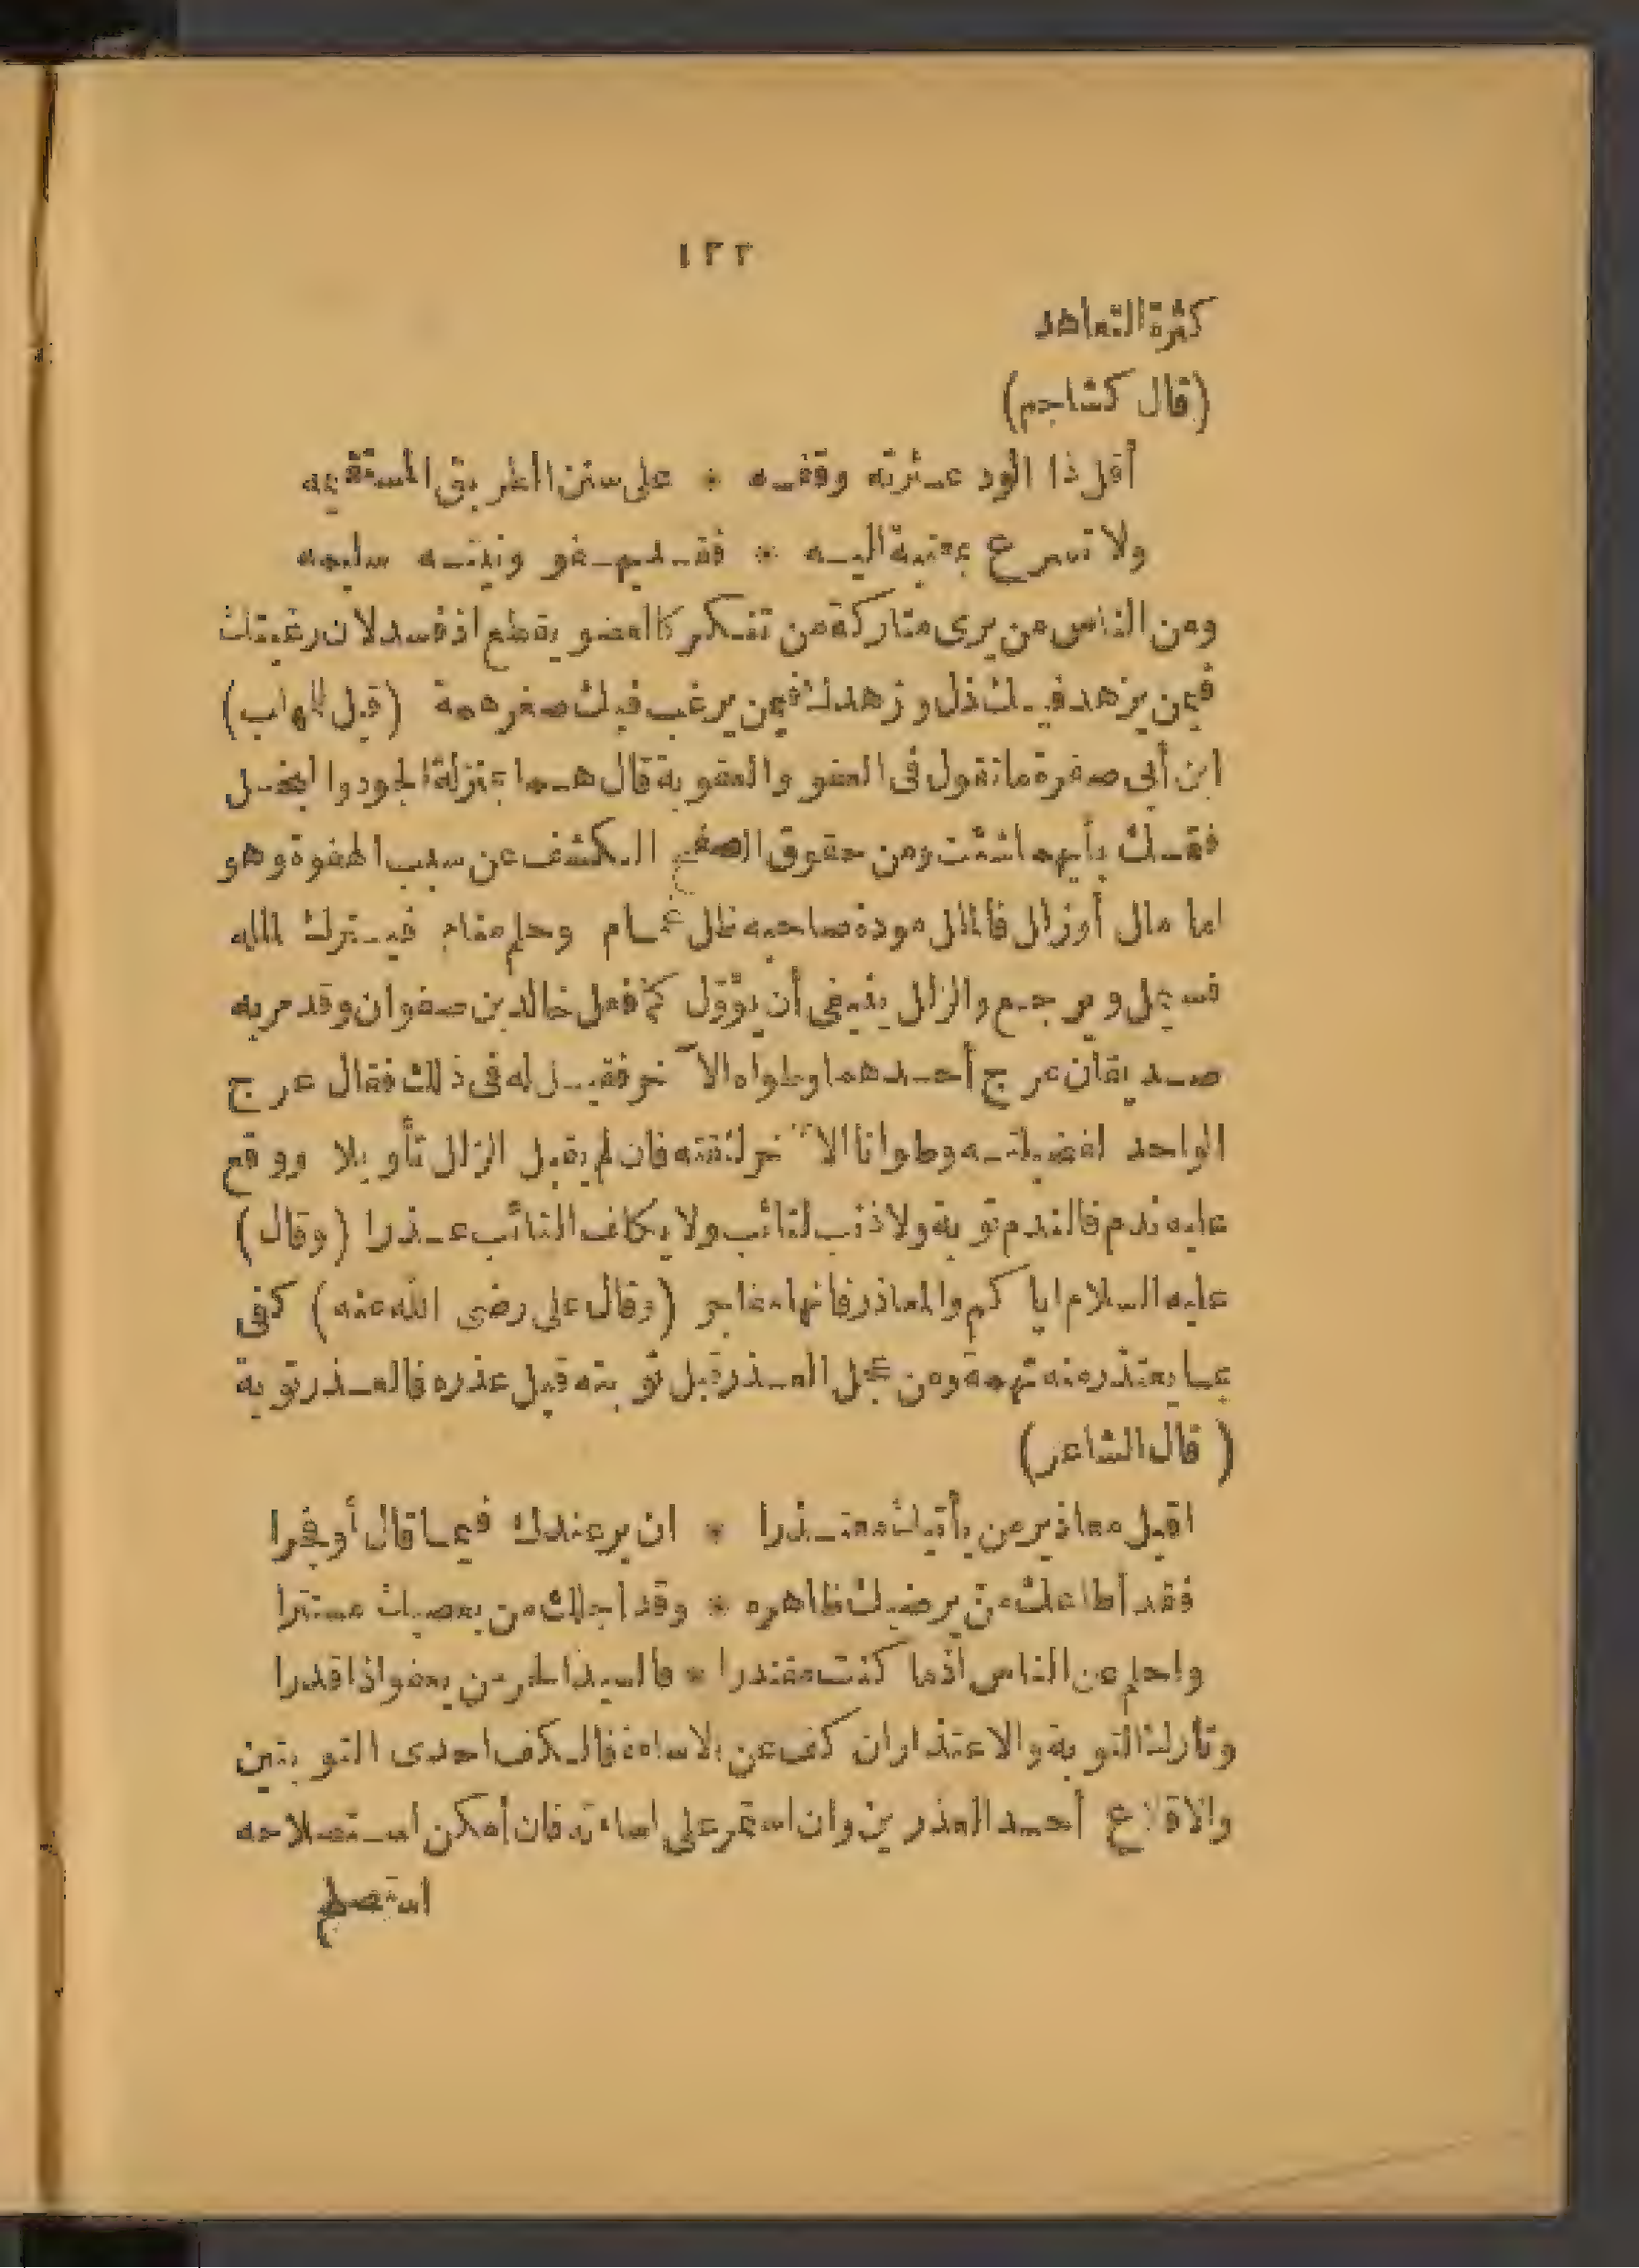 ١٢٢
كثرة التعاهد
(قال كشاجم)
أقل ذا الود عثرته وقفه * على سنن الطريق المستقيمه
ولا تسرع بمعتبة اليه * فقد يهفو ونيته سليمه
ومن الناس من يرى متاركة من تنكر كالعضو يقطع اذ فسد لان رغبتك
فيمن يزهد فيك ذل وزهدك فيمن يرغب فيك صغر همة (قيل للمهلب)
ابن أبى صفرة ما تقول فى العفو والعقوبة قال هما بمنزلة الجود والبخل
فتمسك بأيهما شئت ومن حقوق الصفح الكشف عن سبب الهفوة وهو
اما ملل أو زلل فالملل مودة صاحبه ظل غمام وحلم منام فيترك للمله
فسيمل ويرجع والزلل ينبغى أن يؤول كما فعل خالد بن صفوان وقد مر به
صديقان عرج أحدهما وطواه الآخر فقيل له فى ذلك فقال عرج
الواحد لفضيلته وطوانا الآخر لثقته فان لم يقبل الزلل تأويلا ووقع
عليه ندم فالندم توبة ولا ذنب لتائب ولا يكلف التائب عذرا (وقال)
عليه السلام اياكم والمعاذر فانها مفاجر (وقال على رضى الله عنه) كفى
بما يعتذر منه تهمة ومن عجل العذر قبل توبته قبل عذره فالعذر توبة
(قال الشاعر)
اقبل معاذير من يأتيك معتذرا * ان بر عندك فيما قال أو فجرا
فقد أطاعك من يرضيك ظاهره * وقد أجلك من يعصيك مستترا
واحلم عن الناس اذما كنت مقتدرا * فالسيد الحر من يعفو اذا قدرا
وتارك التوبة والاعتذار ان كف عن الاساءة فالكف احدى التوبتين
والاقلاع أحد العذرين وان استمر على اساءته فان أمكن استصلاحه
استصلح